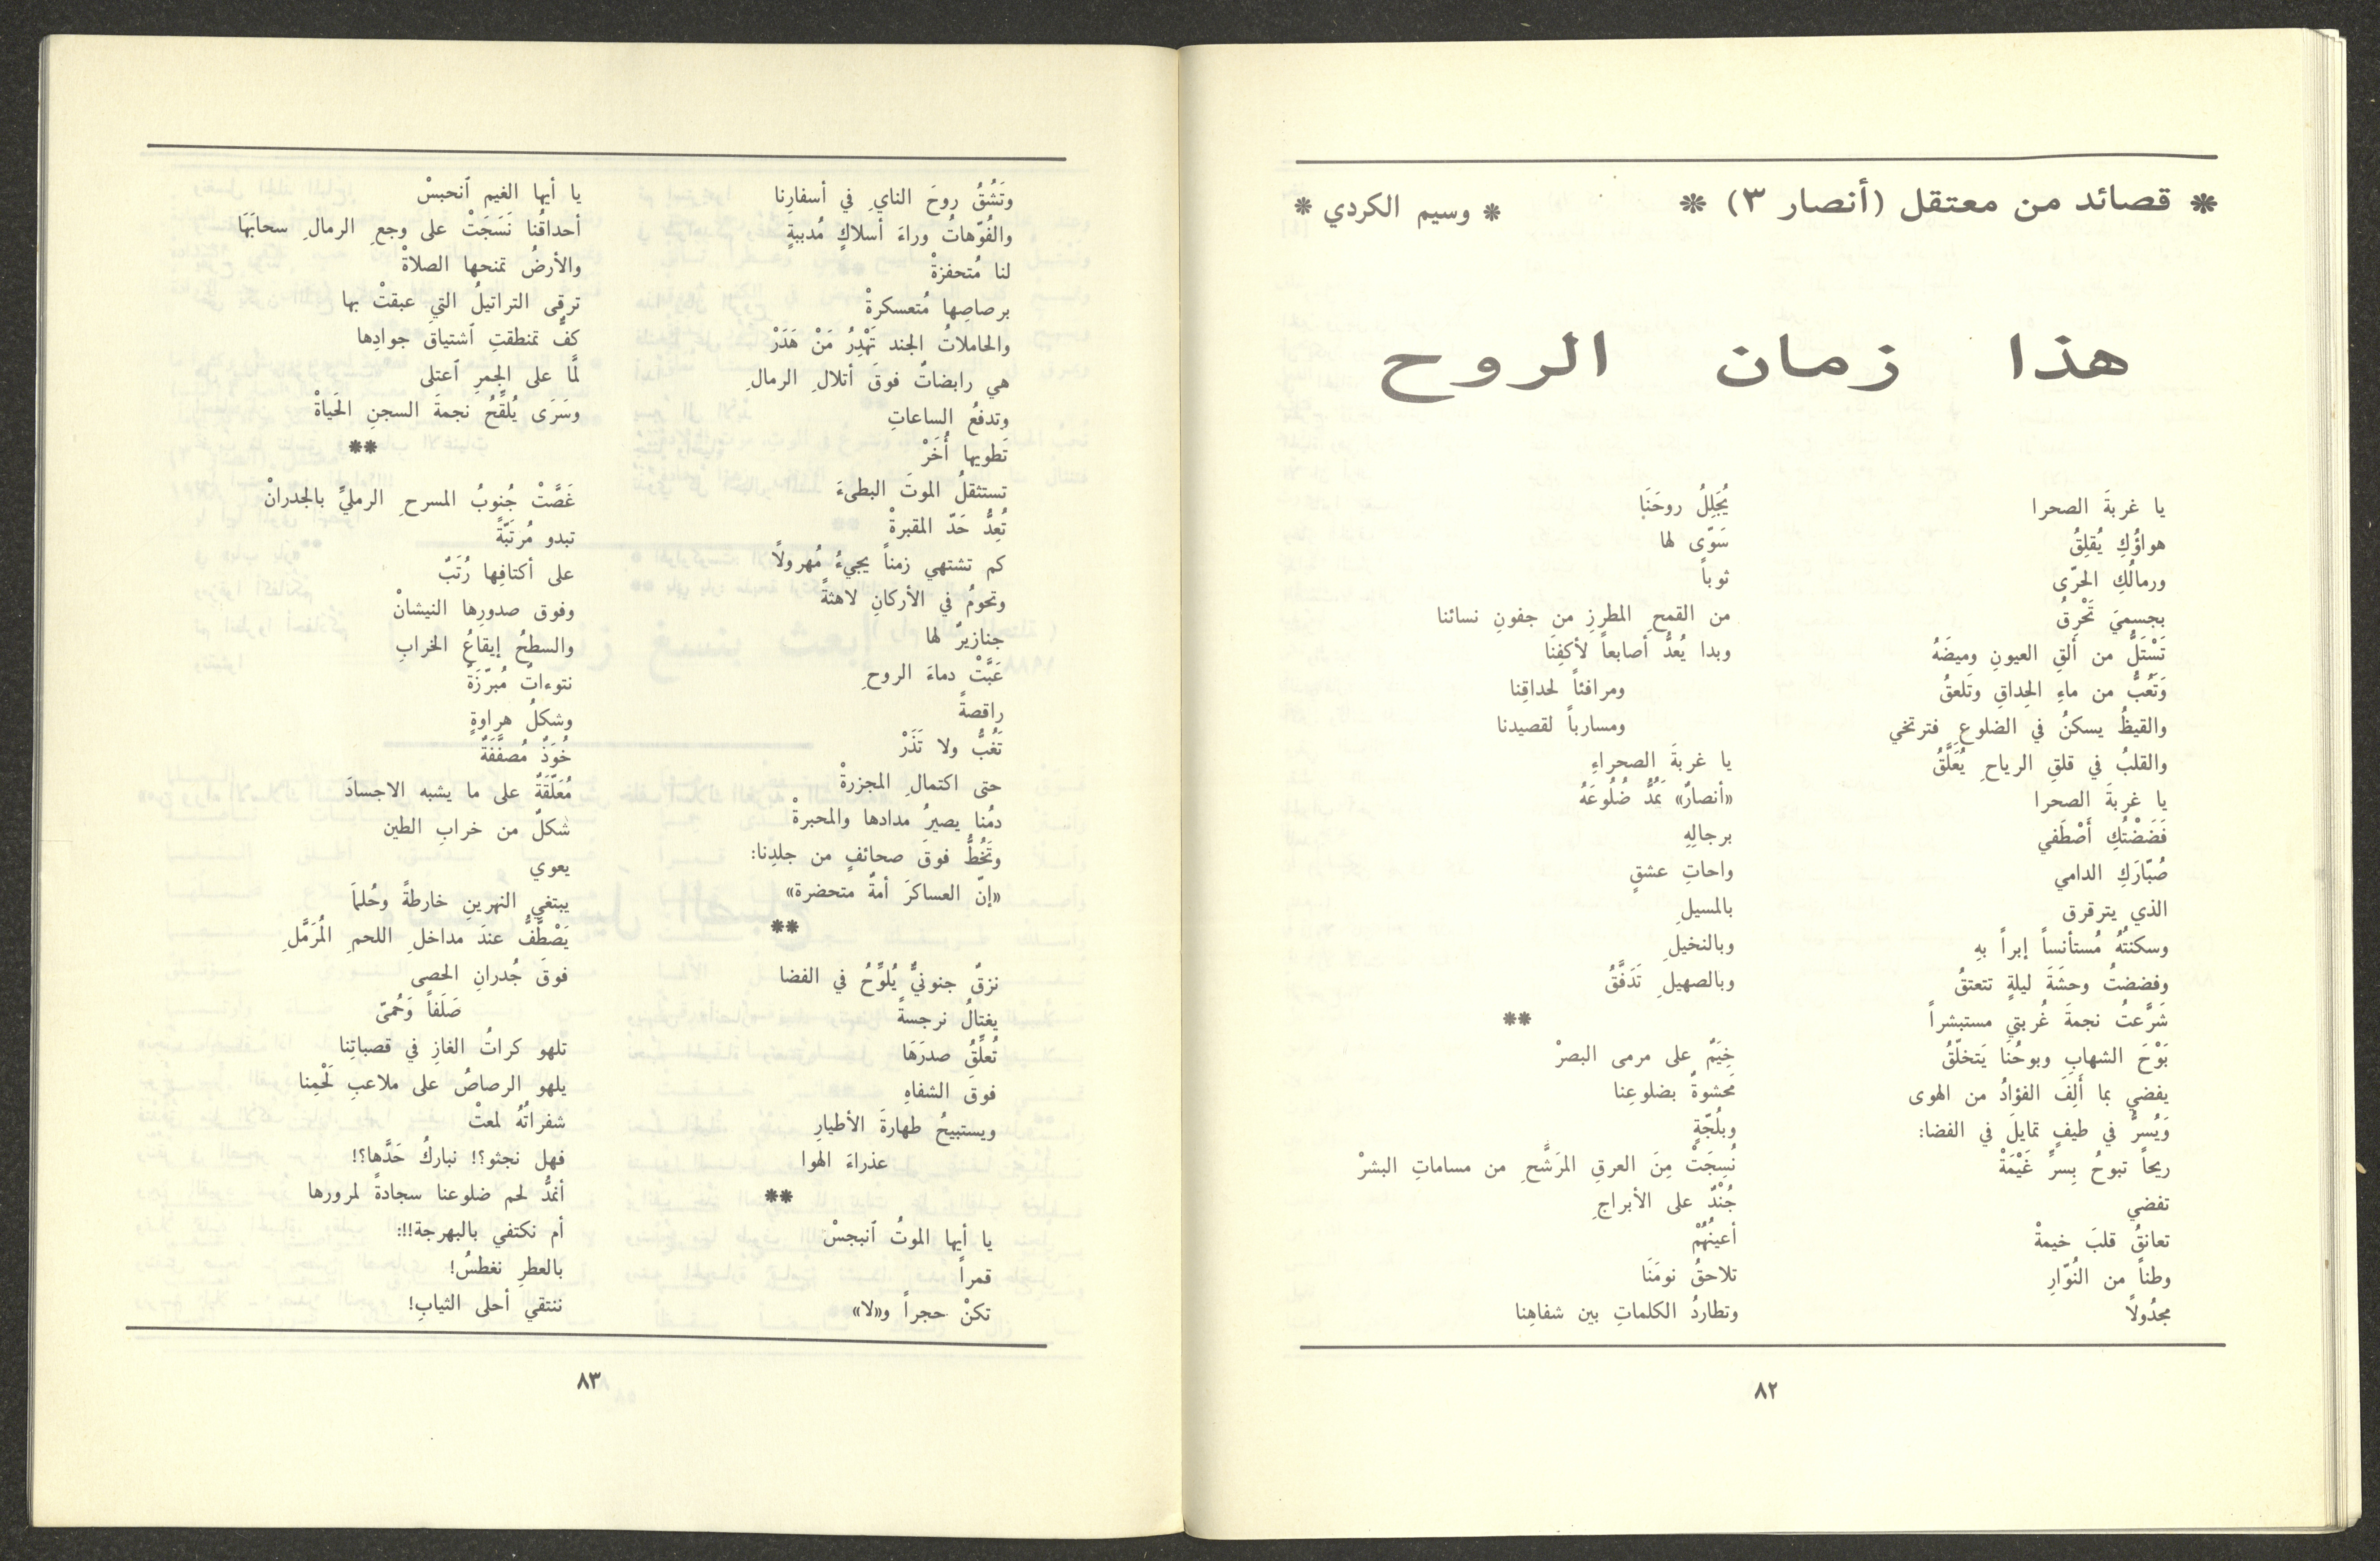 * قصائد من معتقل (أنصار ٣) *
* وسيم الكردي *
هذا زمان الروح
يا غربةَ الصحرا
هواؤُكِ يُقلِقُ
ورمالُكِ الحرّى
بجسمِيَ تَحْرِقُ
تَسْتَلُّ من أَلَقِ العيونِ وميضَهُ
وَتَعُبُّ من ماءِ الحِداقِ وتَلعقُ
والقيظُ يسكنُ في الضلوعِ فترتخي
والقلبُ في قلقِ الرياحِ يُعَلَّقُ
يا غربةَ الصحرا
فَضَضْتُكِ أَصْطَفي
صُبّارَكِ الدامي
الذي يترقرق
وسكنتُهُ مُستأنساً إبراً بهِ
وفضضتُ وحشَةَ ليلةٍ تتعتقُ
شَرَّعتُ نجمةَ غُربتي مستبشراً
بَوْحَ الشهابِ وبوحُنَا يَتخلّقُ
يفضي بما أَلِفَ الفؤادُ من الهوى
وَيُسرُّ في طيفٍ تمايلَ في الفضا:
ريحاً تبوحُ بِسرِّ غَيْمَةْ
تفضي
تعانقُ قلبَ خيمةْ
وطناً من النُوّارِ
مجدُولاً
يُجَلِلُ روحَنَا
سَوّى لها
ثوباً
من القمحِ المطرزِ من جفونِ نسائنا
وبدا يُعدُّ أصابعاً لأكفِنَا
ومرافئاً لحداقِنا
ومسارباً لقصيدنا
يا غربةَ الصحراءِ
«أنصارٌ» تَمُدُّ ضُلُوعَهُ
برجالِهِ
واحاتِ عشقٍ
بالمسيلِ
وبالنخيلِ
وبالصهيلِ تَدَفَّقُ
**
خِيَمٌ على مرمى البصرْ
مَحشوةٌ بضلوعِنا
وبلُجّةٍ
نُسِجَتْ مِنَ العرقِ المرَشَّحِ من مساماتِ البشرْ
جُنْدٌ على الأبراجِ
أعينُهُمْ
تلاحقُ نومَنَا
وتطاردُ الكلماتِ بين شفاهِنا
٨٢
وتَشُقُّ روحَ النايِ في أسفارِنا
والفُوّهاتُ وراءَ أسلاكٍ مُدببةٍ
لنا مُتحفزةْ
برصاصِها مُتعسكرةْ
والحاملاتُ الجند تَهْدِرُ مَنْ هَدَرْ
هي رابضاتٌ فوقَ أتلالِ الرمالِ
وتدفعُ الساعاتِ
تَطويها أُخَرْ
تستثقلُ الموتَ البطىءَ
تُعِدُّ حَدّ المقبرةْ
كم تشتهي زمناً يجيءُ مُهرولاً
وتحومُ في الأركانِ لاهثةً
جنازيرٌ لها
عَبَّتْ دماءَ الروحِ
راقصةً
تَعُبُّ ولا تَذَرْ
حتى اكتمالِ المجزرةْ
دمُنا يصيرُ مدادها والمحبرةْ
وتَخُطُّ فوقَ صحائفٍ من جلدِنا:
«إنّ العساكرَ أمةٌ متحضرة»
**
نزقٌ جنونيٌّ يُلوِّحُ في الفضا
يغتالُ نرجسةً
تُعلِّقُ صدرَهَا
فوق الشفاهِ
ويستبيحُ طهارةَ الأطيارِ
عذراءَ الهوا
**
يا أيها الموتُ ٱنبجسْ
قمراً
تكنْ حجراً و«لا»
يا أيها الغيم ٱنحبسْ
أحداقُنا نَسَجَتْ على وجعِ الرمالِ سحابَهَا
والأرضُ تمنحها الصلاةْ
ترقى التراتيلُ التي عبقتْ بها
كفٌّ تمنطقتِ ٱشتياقَ جوادِها
لمَّا على الجمرِ ٱعتلى
وسَرَى يُلقِّحُ نجمةَ السجنِ الحَياةْ
**
غَصَّتْ جُنوبُ المسرحِ الرمليِّ بالجدرانْ
تبدو مُرتَبّةً
على أكتافِها رُتَبٌ
وفوق صدورِها النيشانْ
والسطحُ إيقاعُ الخرابِ
نتوءاتٌ مُبرّزَةٌ
وشكلُ هراوةٍ
خُوَذٌ مُصفَّفَةٌ
مُعَلّقَةٌ على ما يشبه الاجسادَ
شكلٌ من خرابِ الطين
يعوي
يبتغي النهرينِ خارطةً وحُلماً
يَصْطَفُّ عندَ مداخلِ اللحمِ المُرَمَّلِ
فوقَ جُدرانِ الحصى
صَلَفاً وَحُمىّ
تلهو كراتُ الغازِ في قصباتِنا
يلهو الرصاصُ على ملاعبِ لَحْمِنا
شفراتُهُ لمعتْ
فهل نجثو؟! نباركُ حَدَّها؟!
أنمدُّ لحم ضلوعنا سجادةً لمرورها
أم نكتفي بالبهرجة!!:
بالعطرِ نغطسُ!
ننتقي أحلى الثيابِ!
٨٣